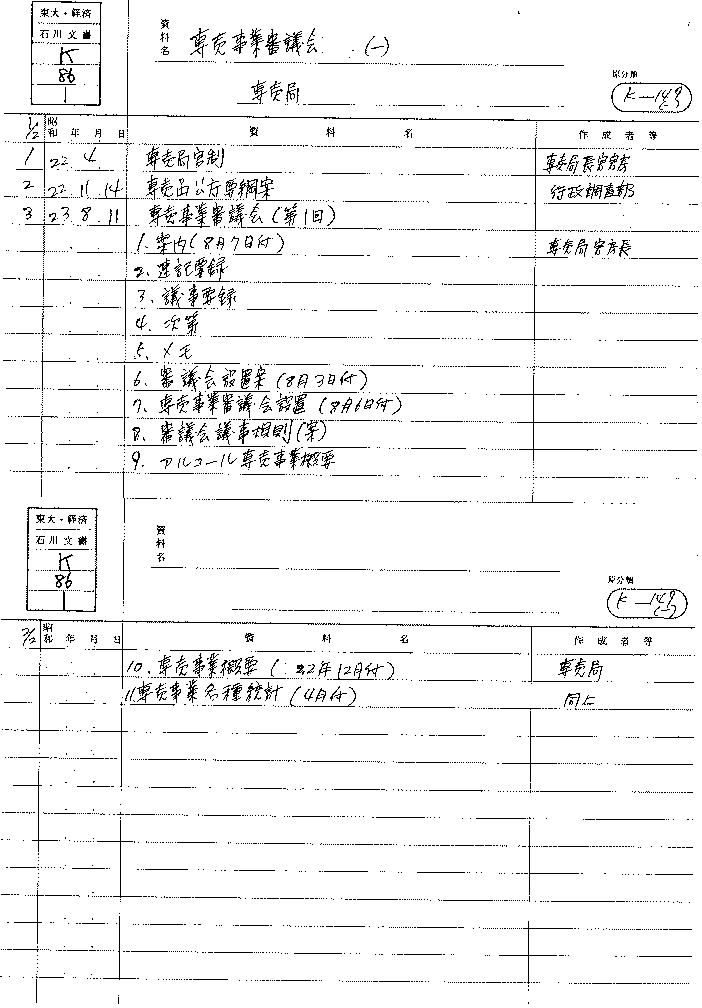 東大・経済
石川文書
K
86
1
資料名 専売事業審議会 (一)
専売局
原分類
K-149
1/2 昭和 年 月 日 資料名 作成者等
1 22 4 専売局官制 専売局長官官房
2 22 11 14 専売品公方要綱案 行政調査部
3 23 8 11 専売事業審議会(第1回)
1. 案内(8月7日付) 専売局官房長
2. 速記要録
3. 議事要録
4. 次第
5. メモ
6. 審議会設置案(8月3日付)
7. 専売事業審議会設置(8月6日付)
8. 審議会議事規則(案)
9. アルコール専売事業概要
東大・経済
石川文書
K
86
1
資料名
原分類
K-149
2/2 昭和 年 月 日 資料名 作成者等
10. 専売事業概要(22年12月付) 専売局
11. 専売事業各種統計(4月付) 同上